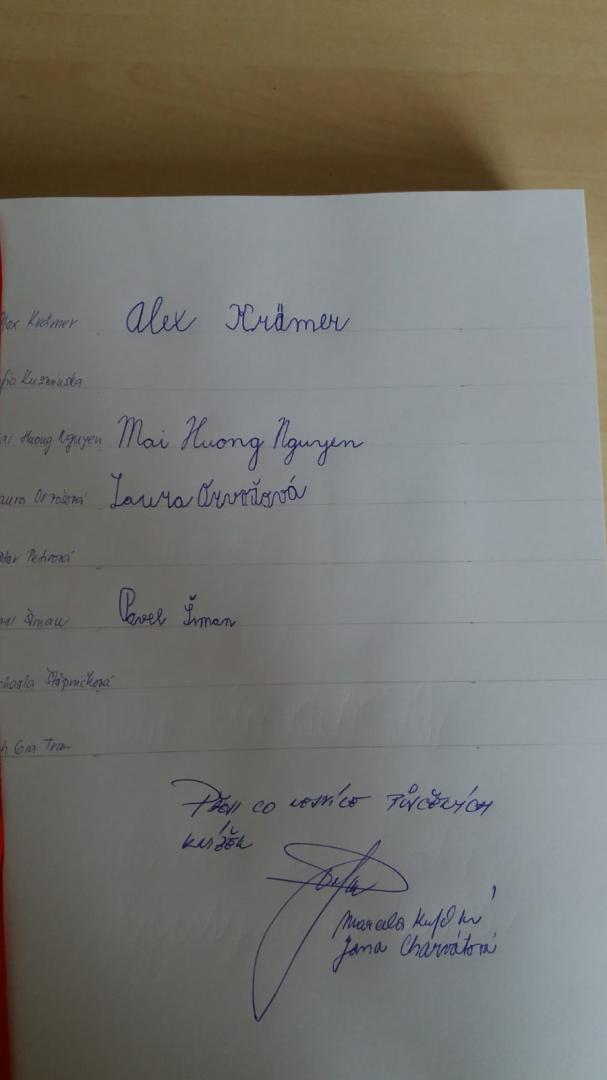 lex Krämer Alex Krämer
fia Kuzminska
ai Huong Nguyen Mai Huong Nguyen
aura Orvošová Laura Orvošová
Petrová
Šman Pavel Šman
Štěpničková
h Gia Tran
Přeji co nejvíce půjčených
knížek
Marcela
Jana Charvátová